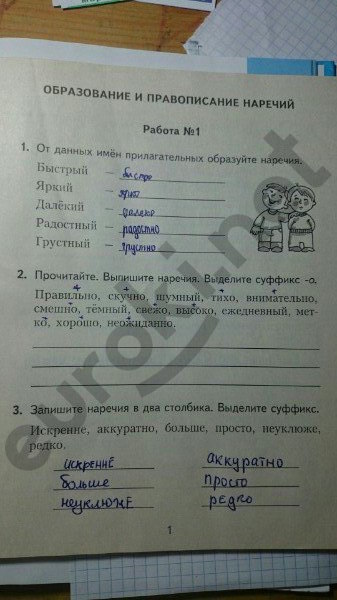 ОБРАЗОВАНИЕ И ПРАВОПИСАНИЕ НАРЕЧИЙ
Работа №1
1. От данных имён прилагательных образуйте наречия.
Быстрый – быстро
Яркий – ярко
Далёкий – далеко
Радостный – радостно
Грустный – грустно
2. Прочитайте. Выпишите наречия. Выделите суффикс -о.
Правильно, скучно, шумный, тихо, внимательно,
смешно, тёмный, свежо, высоко, ежедневный, мет-
ко, хорошо, неожиданно.
3. Запишите наречия в два столбика. Выделите суффикс.
Искренне, аккуратно, больше, просто, неуклюже,
редко.
искренне аккуратно
больше просто
неуклюже редко
1
euroki.net